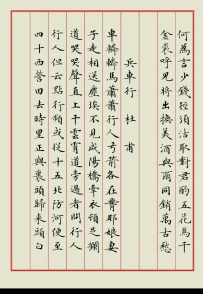 何為言少錢徑須沽取對君酌五花馬千
金裘呼兒將出換美酒與爾同銷萬古愁
兵車行 杜甫
車轔轔馬蕭蕭行人弓箭各在腰耶娘妻
子走相送塵埃不見咸陽橋牽衣頓足攔
道哭哭聲直上干雲霄道旁過者問行人
行人但云點行頻或從十五北防河便至
四十西營田去時里正與裹頭歸來頭白